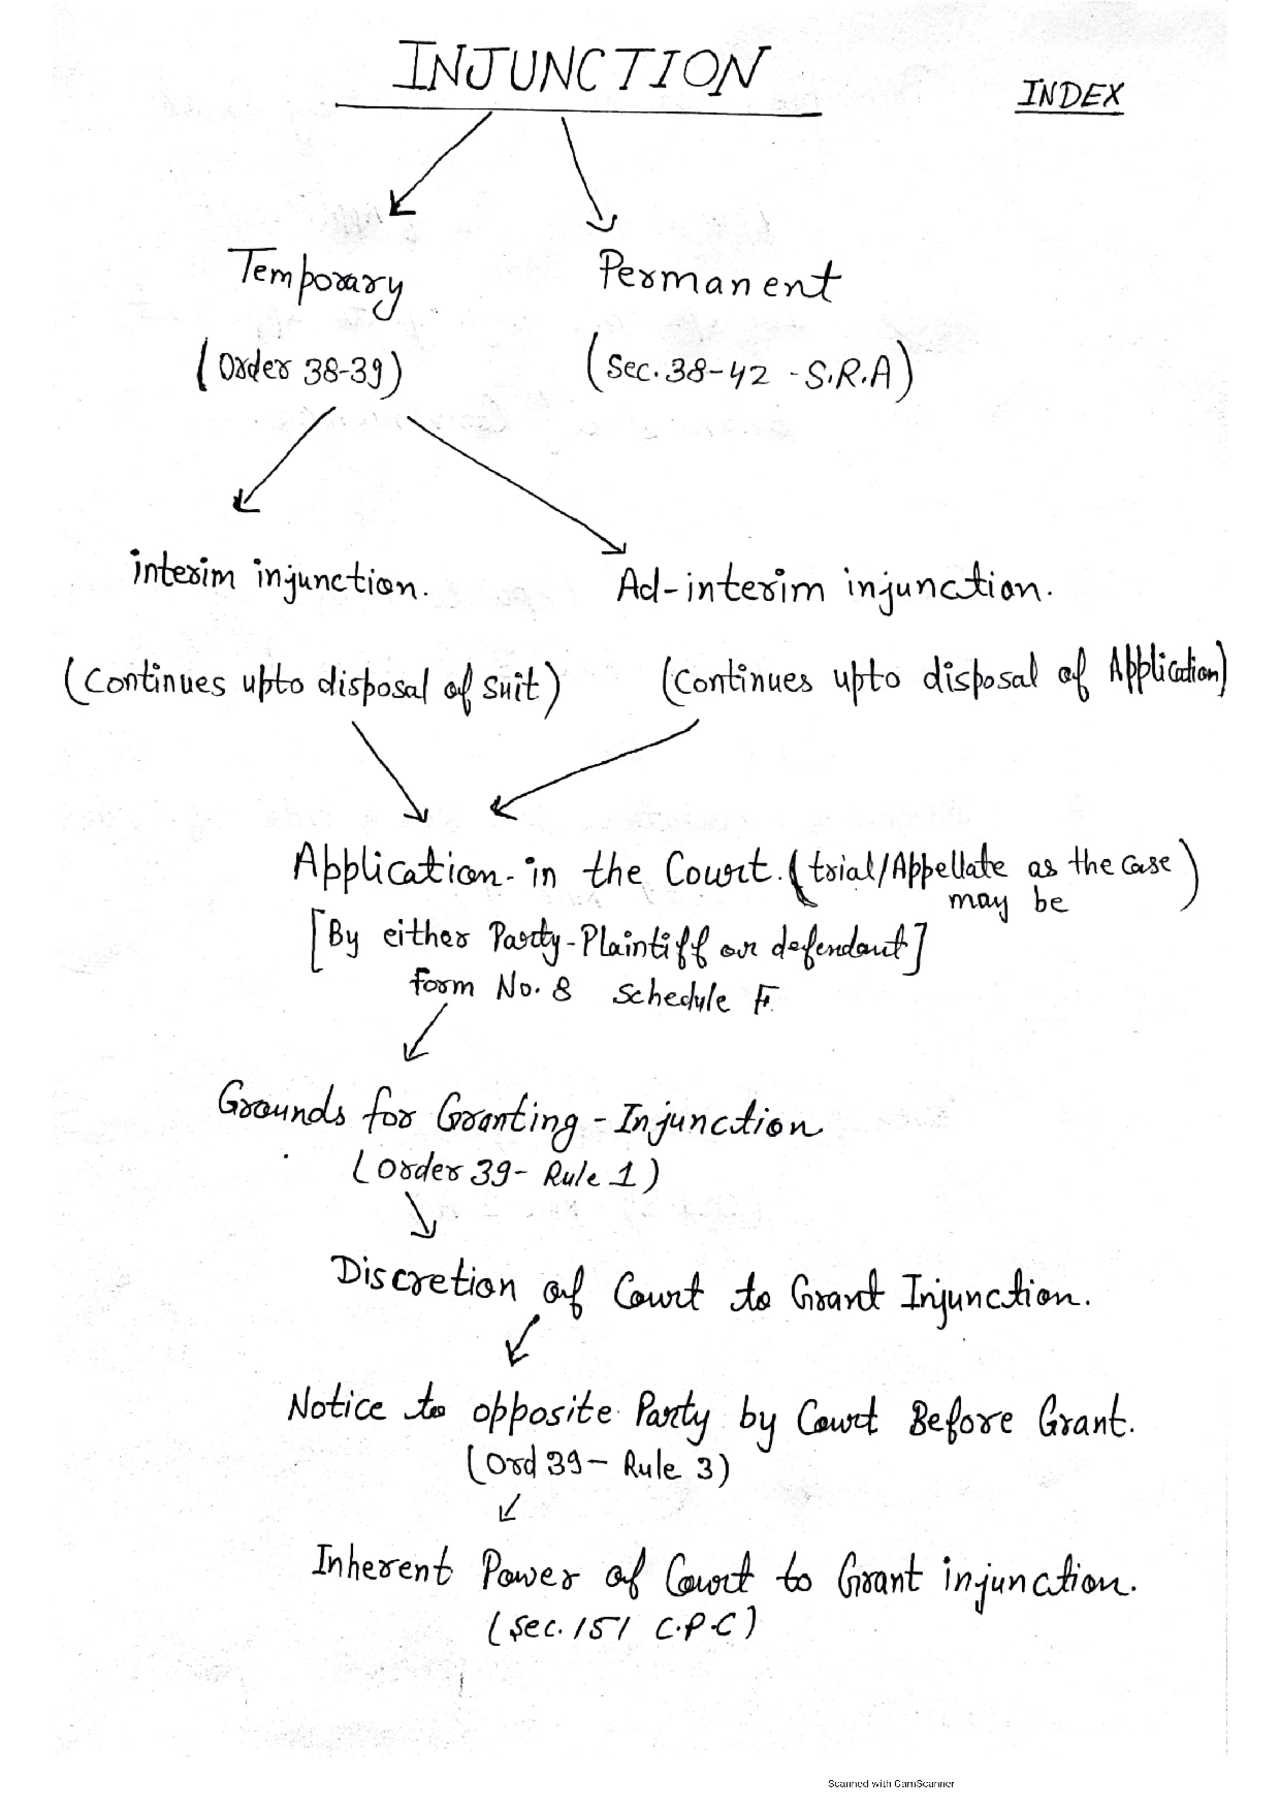 INJUNCTION
INDEX
Temporary
Permanent
(Order 38-39)
(Sec. 38-42 - S.R.A)
interim injunction.
Ad-interim injunction.
(Continues upto disposal of suit)
(Continues upto disposal of Application)
Application in the Court. (trial/Appellate as the case
may be)
[By either Party-Plaintiff or defendant]
form No. 8 Schedule F
Grounds for Granting - Injunction
(Order 39- Rule 1)
Discretion of Court to Grant Injunction.
Notice to opposite Party by Court Before Grant.
(Ord 39 - Rule 3)
Inherent Power of Court to Grant injunction.
(Sec. 151 C.P.C)
Scanned with CamScanner